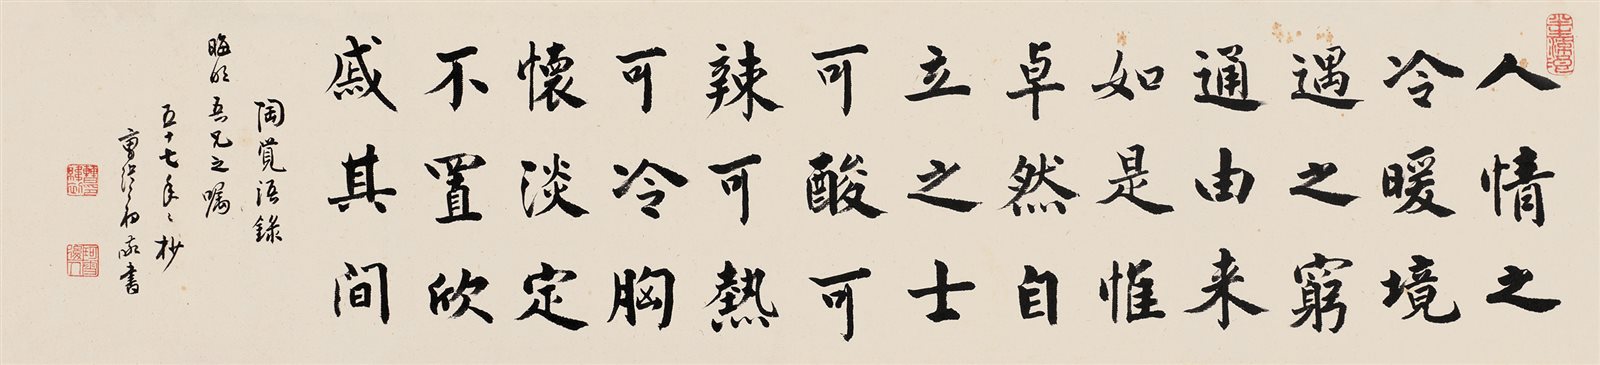 人情之
冷暖境
遇之窮
通由来
如是惟
卓然自
立之士
可酸可
辣可熱
可冷胸
懷淡定
不置欣
戚其間
陶覺語錄
晦 吾兄之嘱
五十七年 抄
書